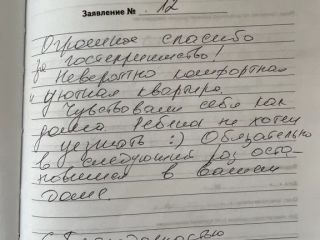 Заявление № 12
Огромное спасибо
за гостеприимство!
Невероятно комфортная
и уютная квартира.
Чувствовали себя как
дома. Ребёнок не хотел
уезжать :) Обязательно
в следующий раз оста-
новимся в вашем
доме.
С благодарностью